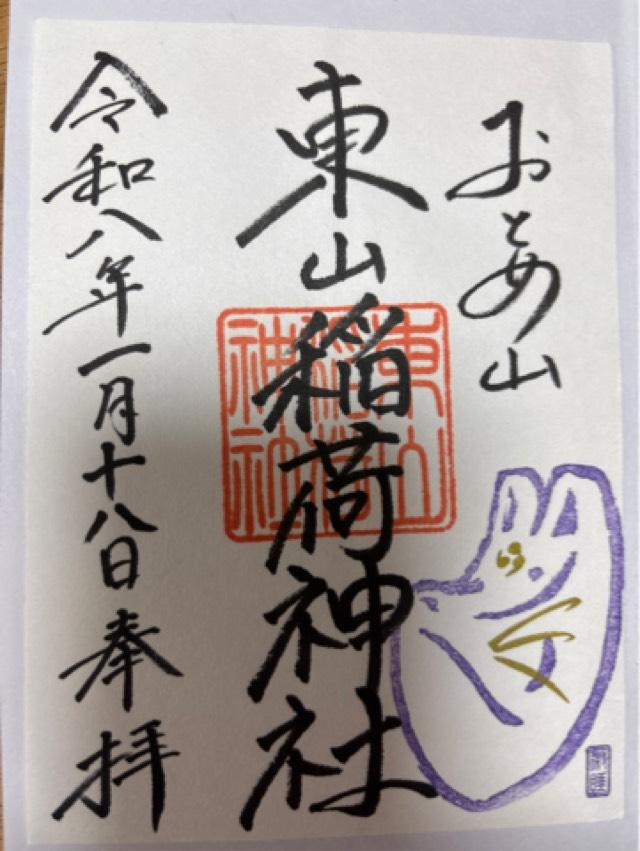 おとめ山
東山稲荷神社
東山稲荷神社
令和八年一月十八日奉拝